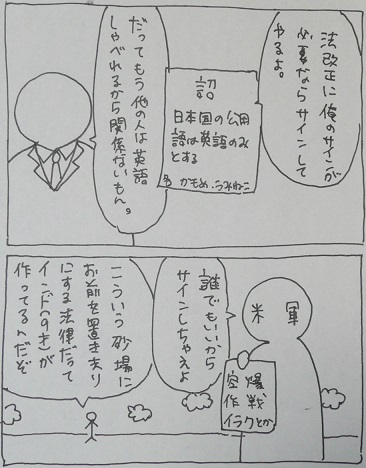 法改正に俺のサインが
必要ならサインして
やるよ。
詔
日本国の公用
語は英語のみ
とする
名 かもめ.うみねこ
だってもう他の人は英語
しゃべれるから関係ないもん。
米軍
誰でもいいから
サインしちゃえよ
空爆
作戦
イラクとか
こういう砂場に
お前を置き去り
にする法律だって
インド が
作ってるんだぞ